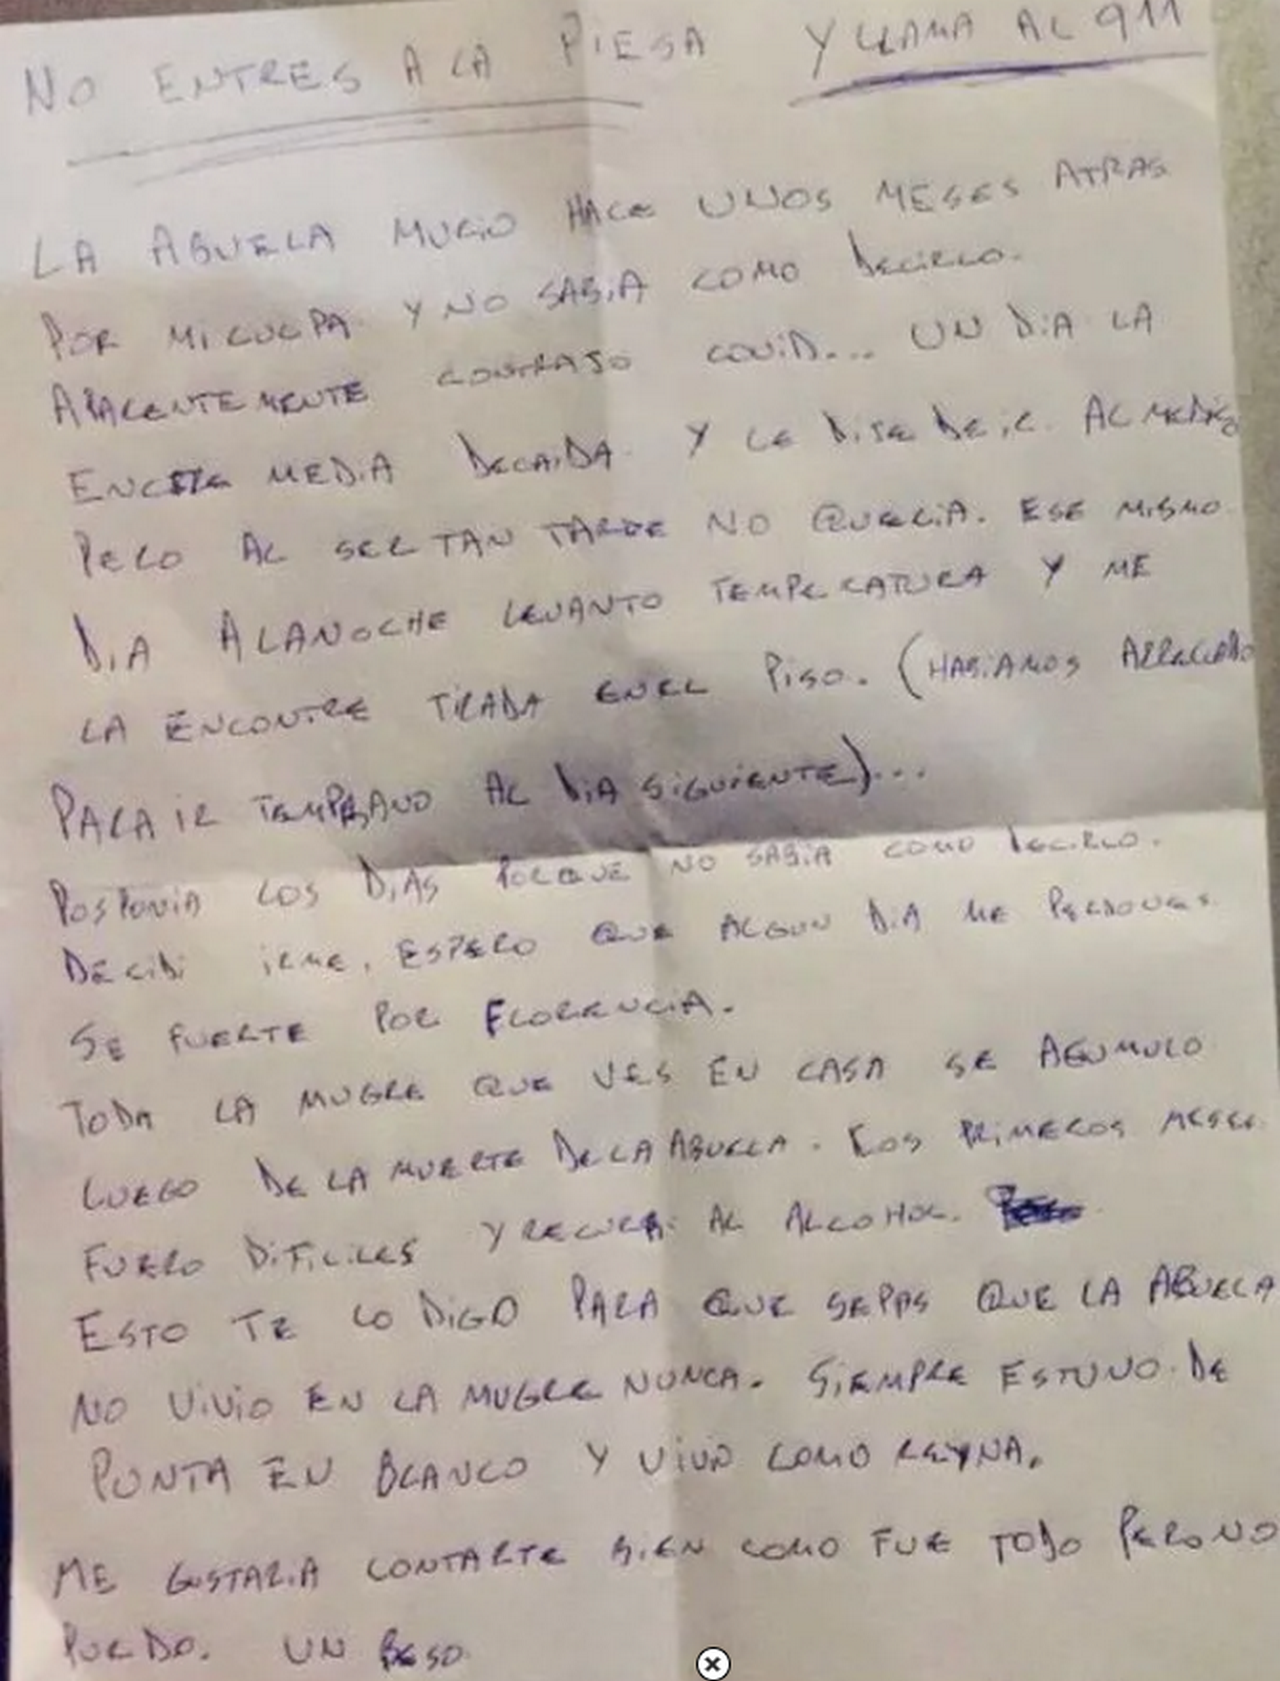 NO ENTRES A LA PIESA Y LLAMA AL 911
LA ABUELA MURIO HACE UNOS MESES ATRAS
POR MI CULPA Y NO SABIA COMO DECIRLO.
APARENTEMENTE CONTRAJO COVID... UN DIA LA
MEDIA DECAIDA. Y LE DIJE DE IR AL MEDICO
PERO AL SER TAN TARDE NO QUERIA. ESE MISMO
DIA A LA NOCHE LEVANTO TEMPERATURA Y ME
LA ENCONTRE TIRADA EN EL PISO. (HABIAMOS ARREGLADO
PARA IR TEMPRANO AL DIA SIGUIENTE)...
POSPONIA LOS DIAS PORQUE NO SABIA COMO DECIRLO.
DECIDI IRME, ESPERO QUE ALGUN DIA ME PERDONES.
SE FUERTE POR FLORENCIA.
TODA LA MUGRE QUE VES EN CASA SE AGUMULO
LUEGO DE LA MUERTE DE LA ABUELA. LOS PRIMEROS MESES
FUERO DIFICILES Y RECURRI AL ALCOHOL.
ESTO TE LO DIGO PARA QUE SEPAS QUE LA ABUELA
NO VIVIO EN LA MUGRE NUNCA. SIEMPRE ESTUVO DE
PUNTA EN BLANCO Y VIVIO COMO REYNA.
ME GUSTARIA CONTARTE BIEN COMO FUE TODO PERO NO
PUEDO. UN BESO